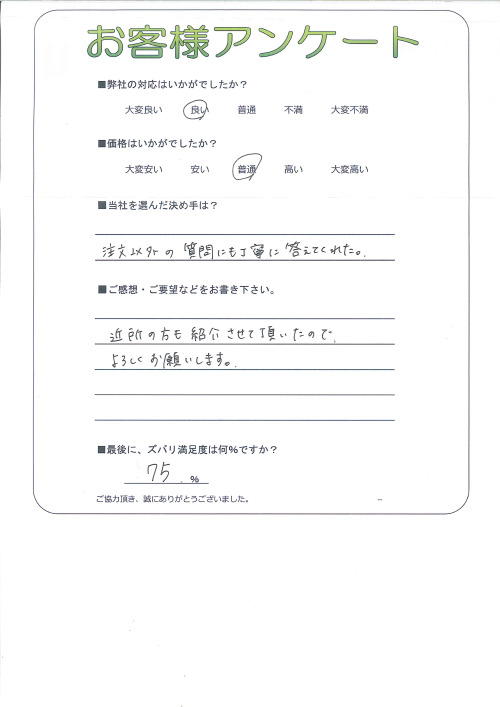 お客様アンケート
■弊社の対応はいかがでしたか？
大変良い 良い 普通 不満 大変不満
■価格はいかがでしたか？
大変安い 安い 普通 高い 大変高い
■当社を選んだ決め手は？
注文以外の質問にも丁寧に答えてくれた。
■ご感想・ご要望などをお書き下さい。
近所の方も紹介させて頂いたので、
よろしくお願いします。
■最後に、ズバリ満足度は何%ですか？
75 %
ご協力頂き、誠にありがとうございました。